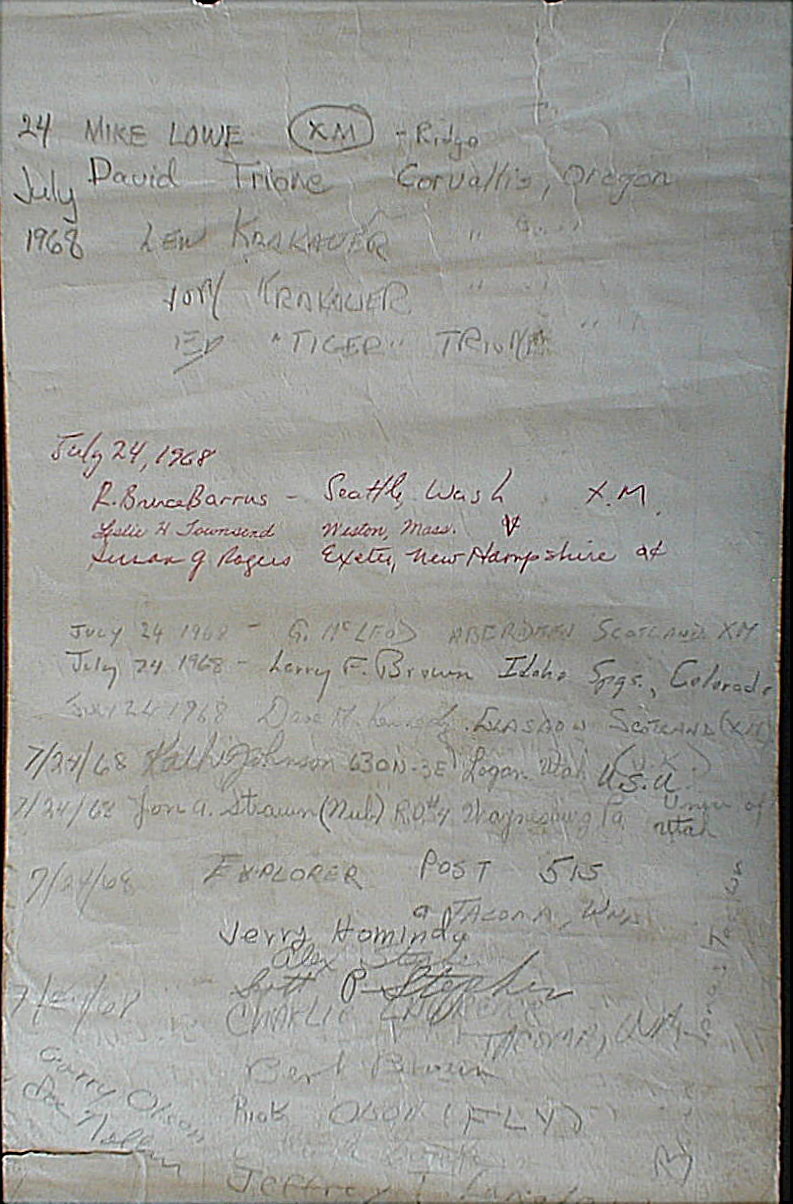 24 MIKE LOWE XM - Ridge
July David Trione Corvallis, Oregon
1968 LEW KRAKAUER " "
KRAKAUER " "
ED "TIGER" TRIONE " "
July 24, 1968
R. Bruce Barrus - Seattle, Wash X.M.
Leslie H Townsend Weston, Mass.
Susan G Rogers Exeter, New Hampshire
JULY 24 1968 - G. McLEOD ABERDEEN SCOTLAND XM
July 24 1968 - Larry F. Brown Idaho Spgs., Colorado
JULY 24 1968 Dave M. Kennedy. GLASGOW SCOTLAND (XM)
(U.K.)
7/24/68 Kathi Johnson 630N-3E Logan Utah U.S.U.
7/24/68 Jon A. Strawn (Nub) R.D.#4 Waynesburg Pa Univ of Utah
7/24/68 EXPLORER POST 515
TACOMA, WN
Jerry Homindy
Alex
Scott P. Stephen
7/24/68 CHARLIE LAWRENCE
TACOMA, WA
Bert
Garry Olson
Rick OLSON (FLY)
Joe
Jeffrey